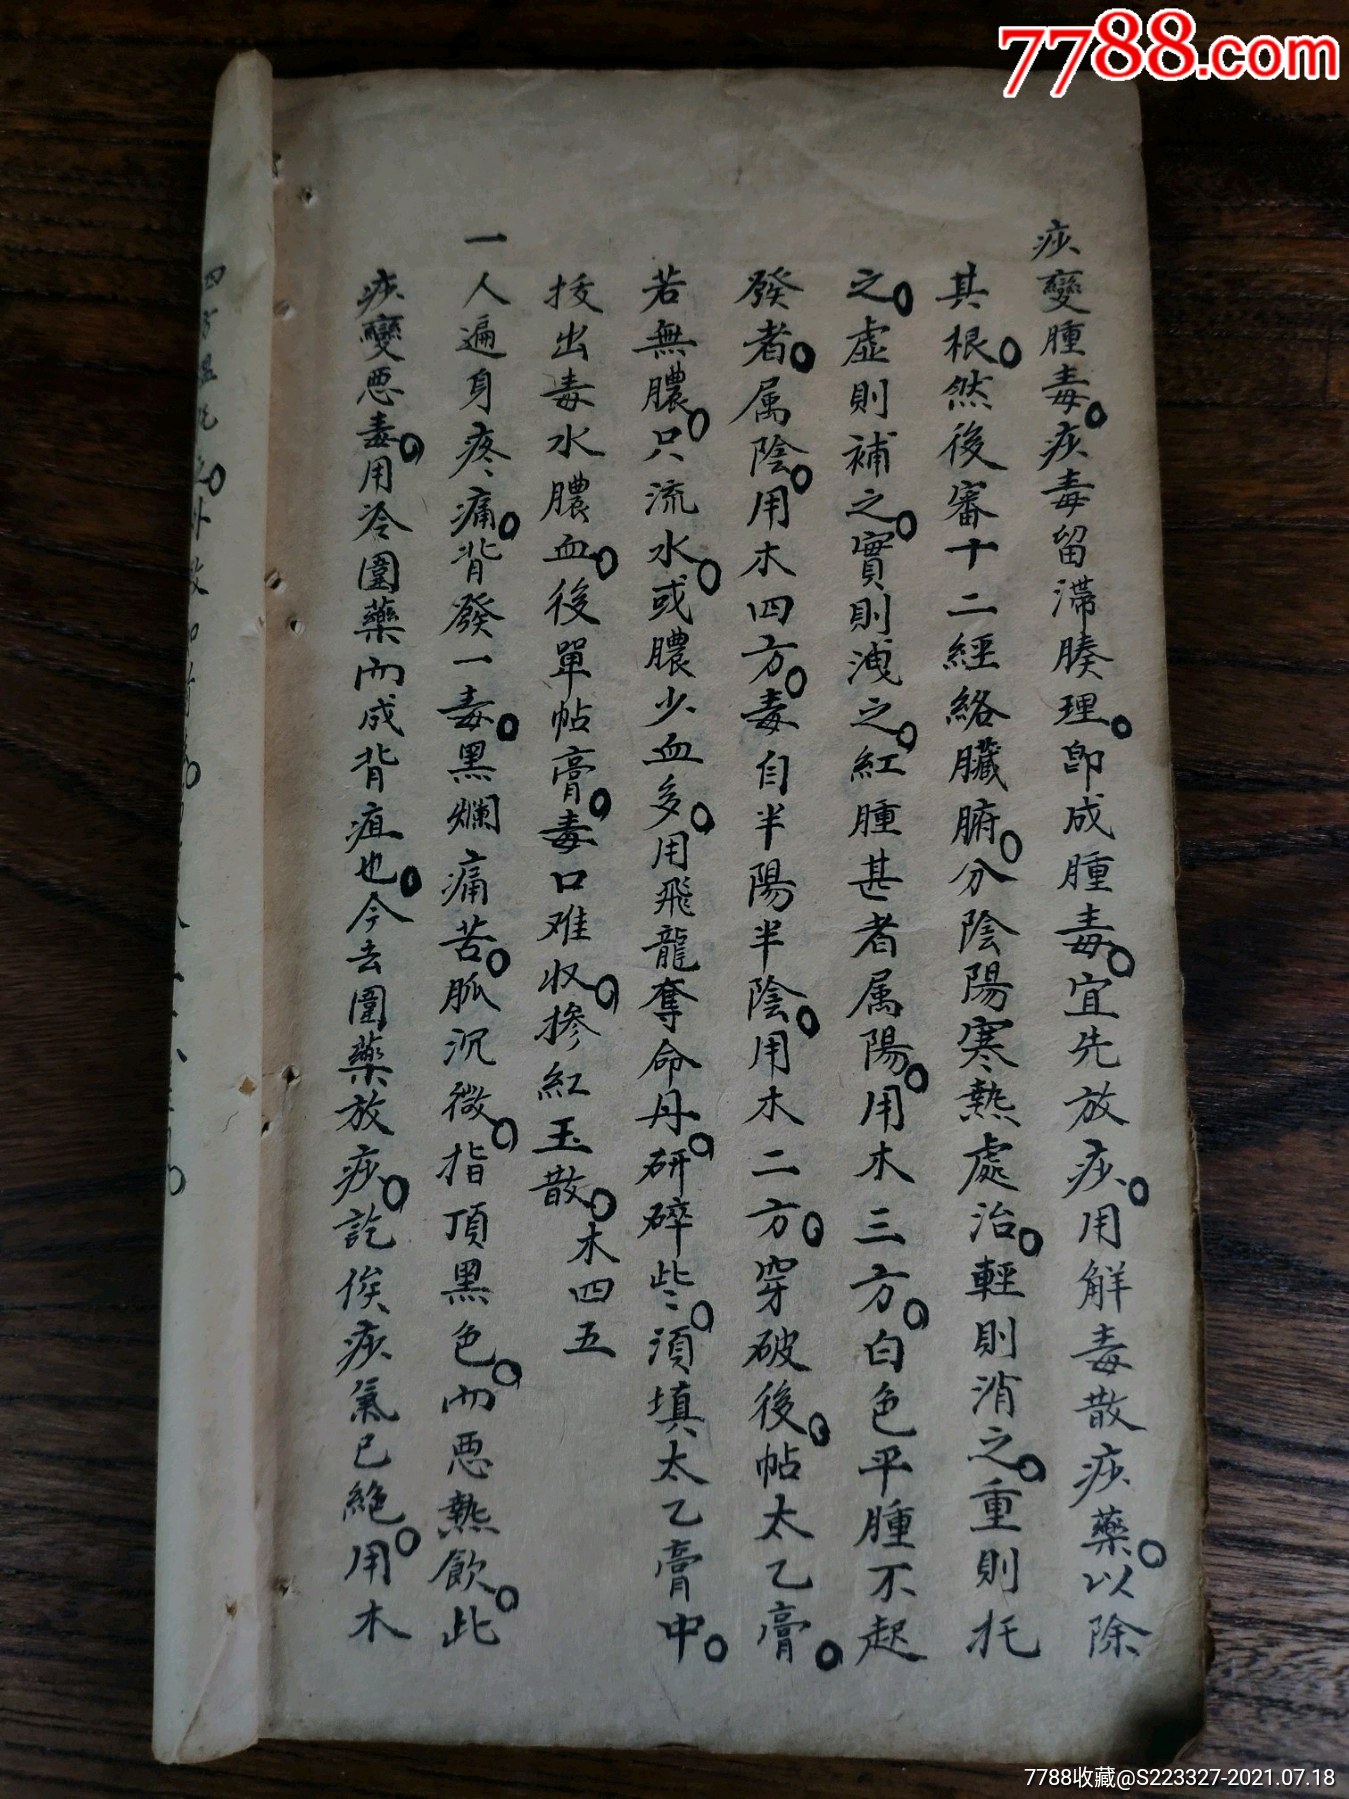 7788.com
疢變腫毒。疢毒留滯腠理。即成腫毒。宜先放疢。用解毒散疢藥。以除
其根。然後審十二經絡臟腑。分陰陽寒熱處治。輕則消之。重則托
之。虛則補之。實則洩之。紅腫甚者属陽。用木三方。白色平腫不起
發者。属陰。用木四方。毒自半陽半陰。用木二方。穿破後。帖太乙膏。
若無膿。只流水。或膿少血多。用飛龍奪命丹。研碎些。須填太乙膏中。
拔出毒水膿血。後單帖膏。毒口难收。摻紅玉散。木四五
一人遍身疼痛。背發一毒。黑爛痛苦。脈沉微。指頂黑色。而惡熱飲。此
疢變惡毒。用冷圍藥而成背疽也。今去圍藥放疢。訖俟疢氣已絕。用木
7788收藏@S223327-2021.07.18